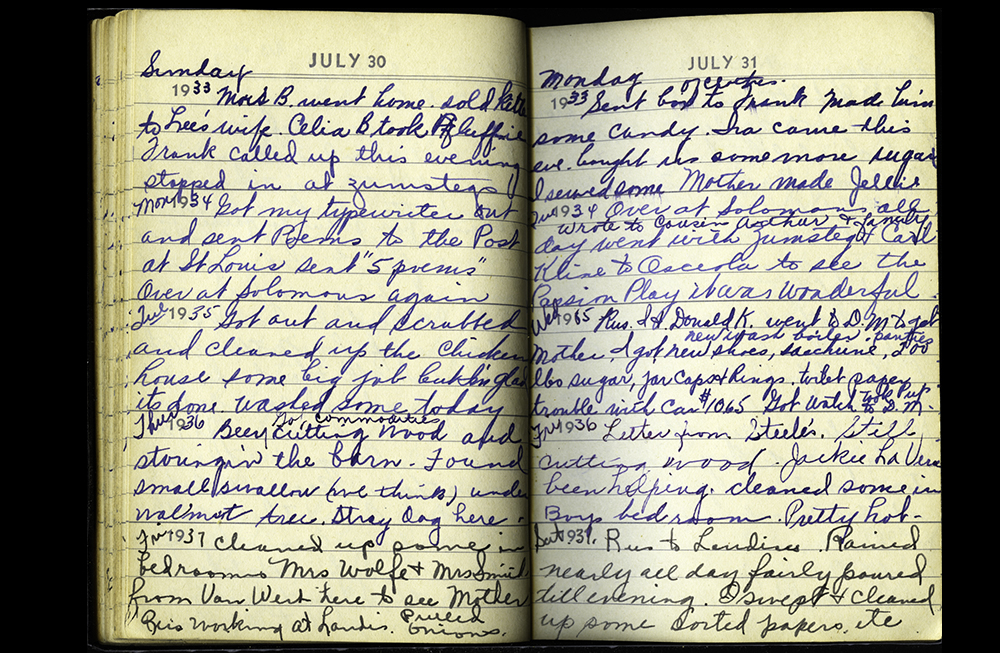 JULY 30
Sunday
1933 Mrs B. went home. sold
to Lee's wife. Celia B took
Frank called up this evening
stopped in at zumstegs
Mon 1934 Got my typewriter out
and sent Poems to the Post
at St Louis sent "5 poems"
Over at Solomons again
Tue 1935 Got out and scrubbed
and cleaned up the chicken
house some big job but Im glad
its done. Washed some today
Got commodities
Thu 1936 Been cutting wood and
storing in the barn. Found
small swallow (we think) under
walnut tree. Stray dog here.
Fri 1937 cleaned up some in
bedrooms Mrs Wolfe & Mrs Smith
from Van Wert here to see Mother
Rus working at Landis. Pulled
onions.
JULY 31
Monday
1933 Sent box to Frank Made him
some candy. Ira came this
eve. bought us some more sugar
I sewed some Mother made Jellie
Tue 1934 Over at Solomons all
Wrote to Cousin Arthur & family
day went with Zumsteg & Carl
Kline to Osceola to see the
Passion Play it was wonderful.
Wed 1935 Rus. I & Donald K. went to D. M. to get
new wash boiler, panties
Mother & I got new shoes, saccharine, 100
lbs sugar, jar caps & rings. toilet paper
trouble with car $10.65 Got Watch
Fri 1936 Letter from Steele's. Still
cutting wood. Jackie LaVera
been helping. cleaned some in
Boys bedroom. Pretty hot.
Sat 1937. Rus to Landiss. Rained
nearly all day fairly poured
till evening. I swept & cleaned
up some Sorted papers, etc